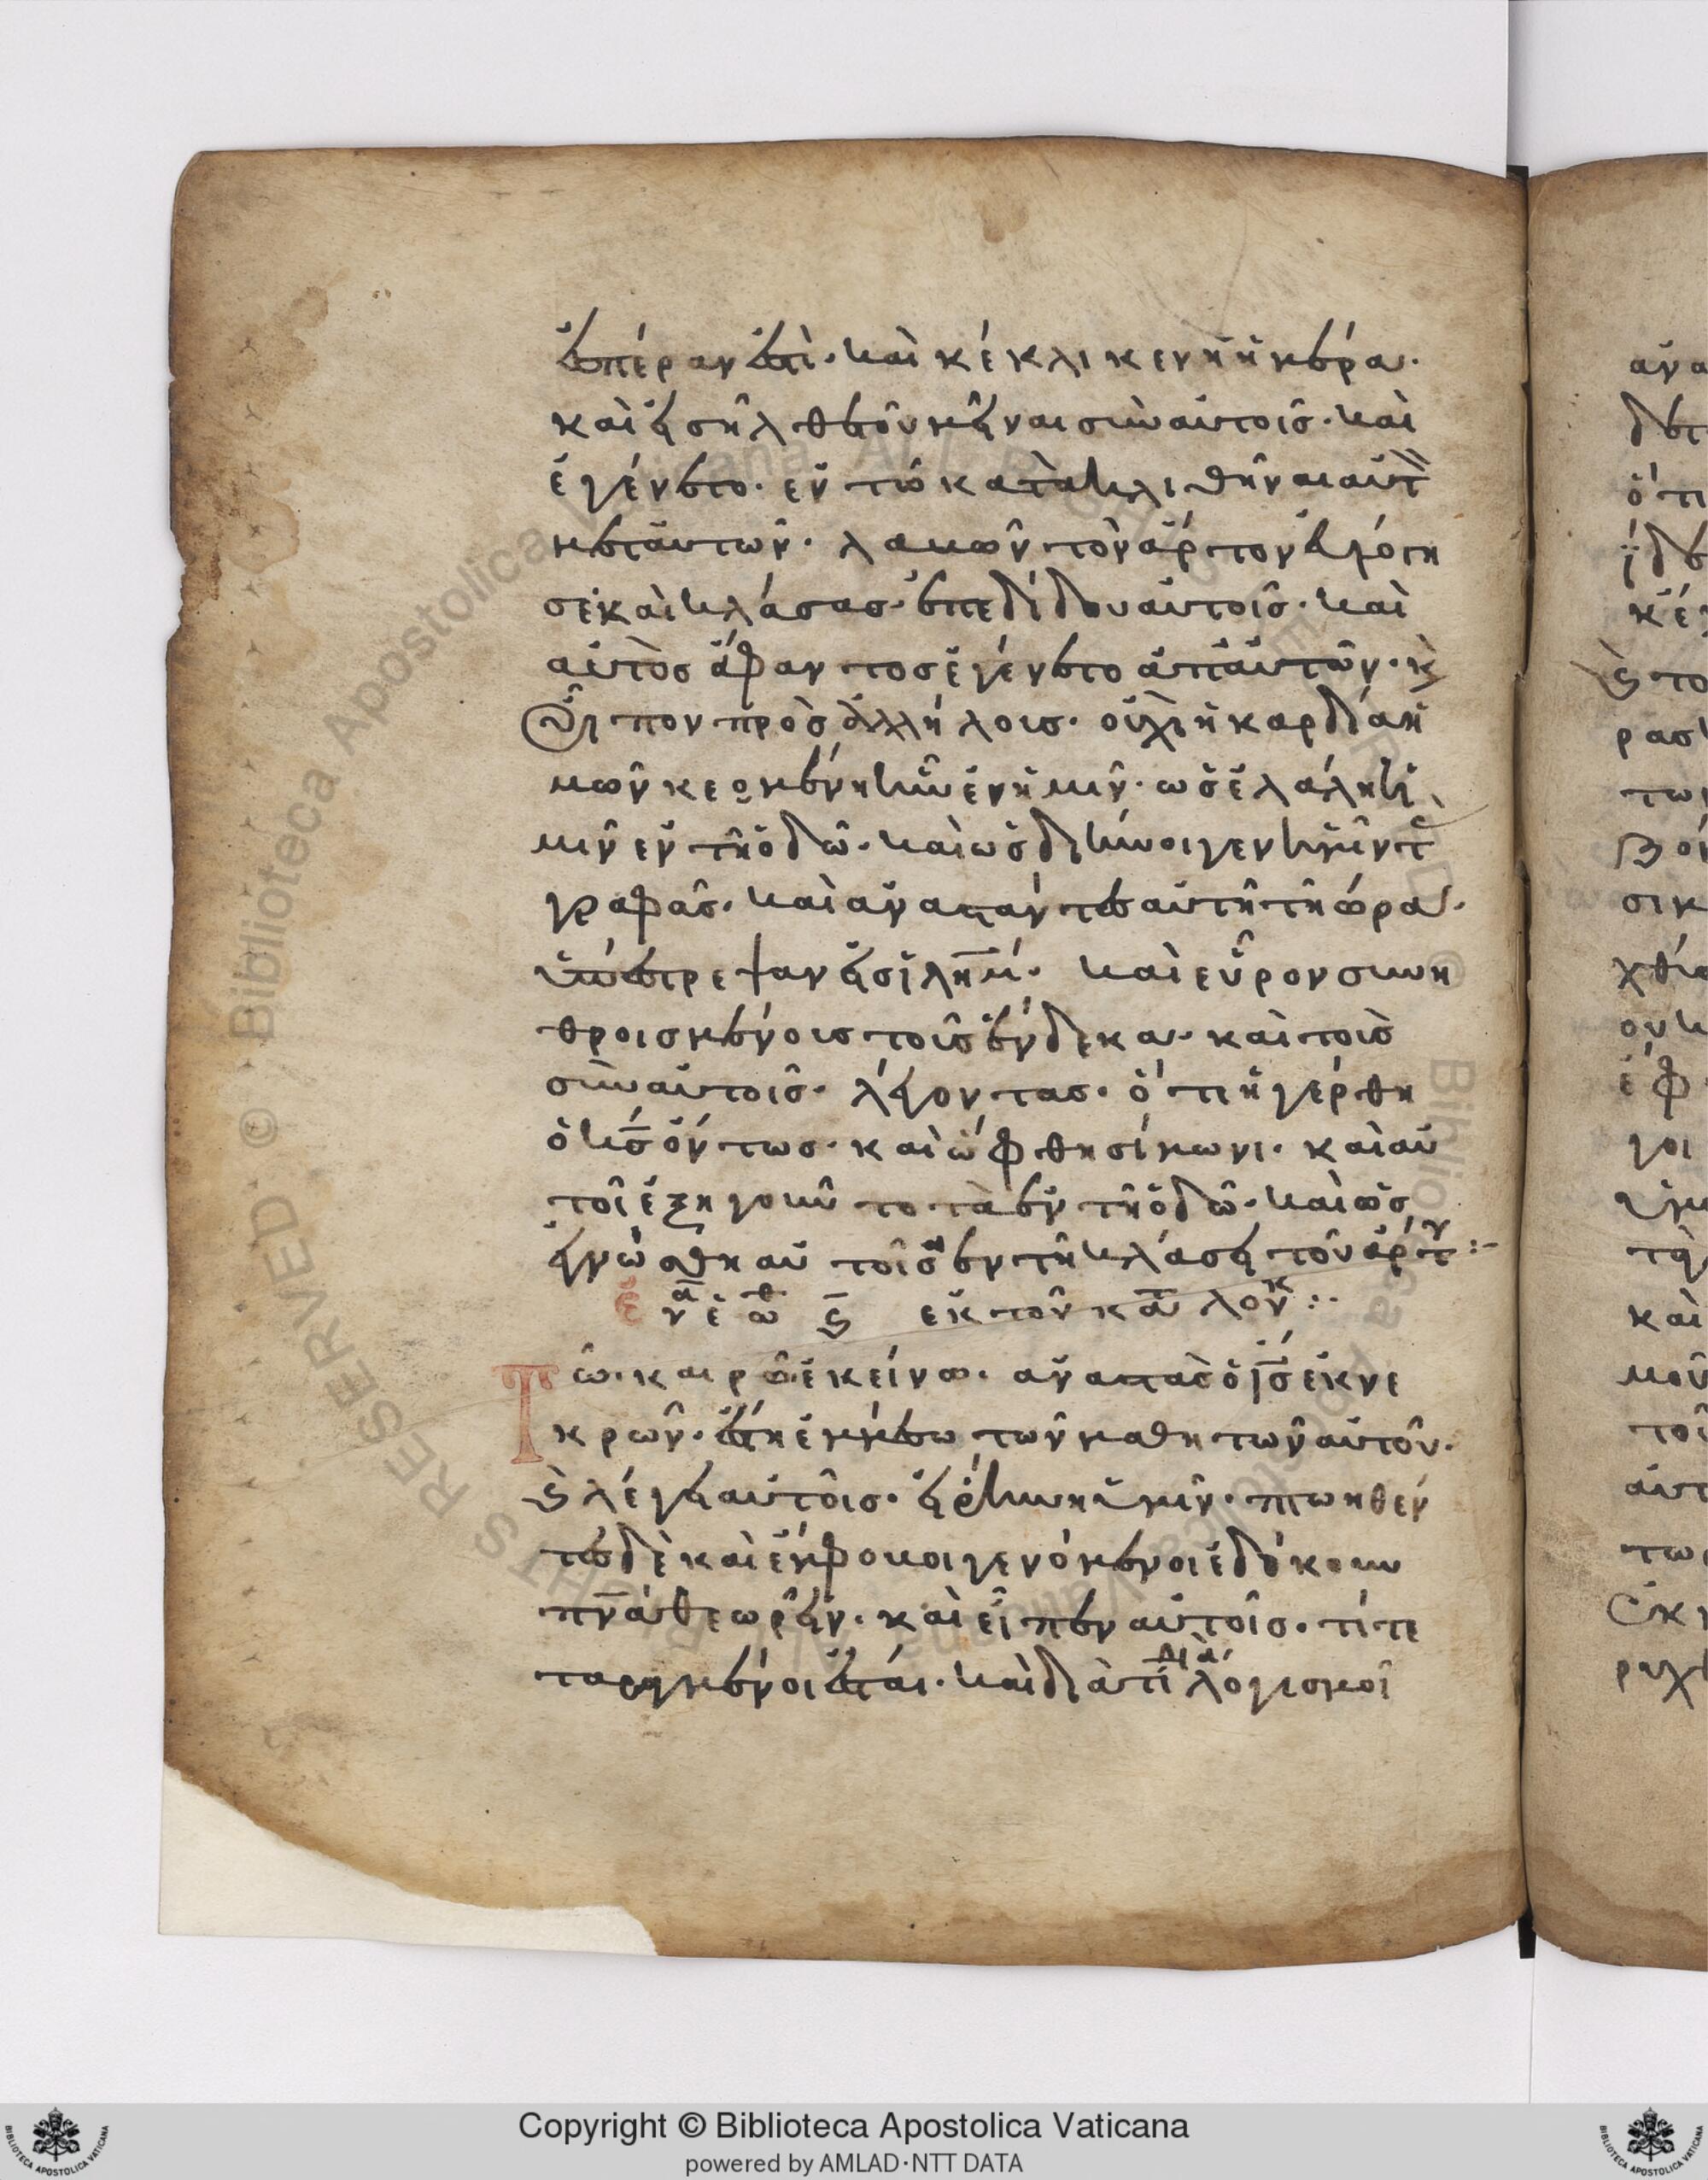 ἑσπέραν ἐστὶ· καὶ κέκλικεν ἡ ἡμέρα·
καὶ εἰσῆλθε τοῦ μεῖναι σὺν αὐτοῖς· καὶ
ἐγένετο· ἐν τῶ κατακλιθῆναι αὐτ
μετ αὐτῶν· λαβῶν τὸν ἄρτον εὐλόγη
σε καὶ κλάσας· ἐπεδίδου αὐτοῖς· καὶ
αὐτὸς ἄφαντος ἐγένετο ἀπ αὐτῶν· κ
εἶπον πρὸς ἀλλήλοις· οὐχὶ ἡ καρδία ἡ
μῶν κεομένη ἦν ἐν ἡμῖν· ὡς ἐλάλη ἡ
μῖν ἐν τῆ ὁδῶ· καὶ ὡς διήνοιγεν ἡμῖν τ
γραφάς· καὶ ἀναστάντες αὐτῆ τῆ ὥρα·
ὑπέστρεψαν εἰς ἰλημ· καὶ εὗρον συνη
θροισμένοις τοῖς ἕνδεκα· καὶ τοῖς
σὺν αὐτοῖς· λέγοντας· ὅτι ἠγέρθη
ὁ κς ὄντως· καὶ ὤφθη σίμωνι· καὶ αὐ
τοῖ ἐξηγοῦντο τὰ ἐν τῆ ὁδῶ· καὶ ὡς
ἐγνώσθη αὐτοῖς ἐν τῆ κλάσει τοῦ ἄρτου:-
ἐκ τοῦ κατ λουκ:·
Τῶ· καιρῶ ἐκείνω· ἀναστὰς ὁ ις ἐκ νε
κρῶν· ἔστη ἐν μέσω τῶν μαθητῶν αὐτοῦ·
κ λέγει αὐτοῖς· εἰρήνη ὑμῖν· πτωηθέν
τες δὲ καὶ ἔμφοβοι γενόμενοι ἐδόκουν
πνα θεωρεῖν· καὶ εἶπεν αὐτοῖς· τί τε
ταραγμένοι ἐσταί· καὶ διὰ τί διαλογισμοὶ
Copyright © Biblioteca Apostolica Vaticana
powered by AMLAD·NTT DATA